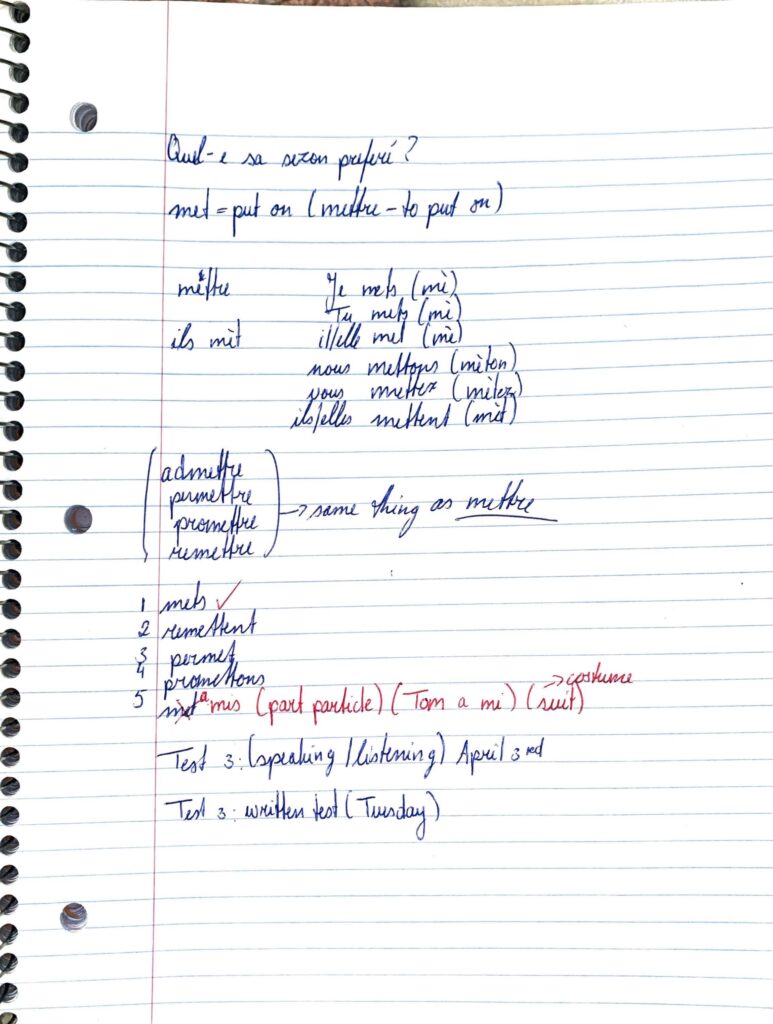 Quel-e sa sezon preferé?
met = put on (mettre - to put on)
mèttre Je mets (mè)
Tu mets (mè)
ils mèt il/elle met (mè)
nous mettons (mèton)
vous mettez (mètez)
ils/elles mettent (mèt)
admettre
permettre
promettre
remettre
→ same thing as mettre
1 mets ✓
2 remettent
3 permet
4 promettons
→ costume
5 met a mis (part particle) (Tom a mi) (suit)
Test 3: (speaking/listening) April 3rd
Test 3: written test (Tuesday)